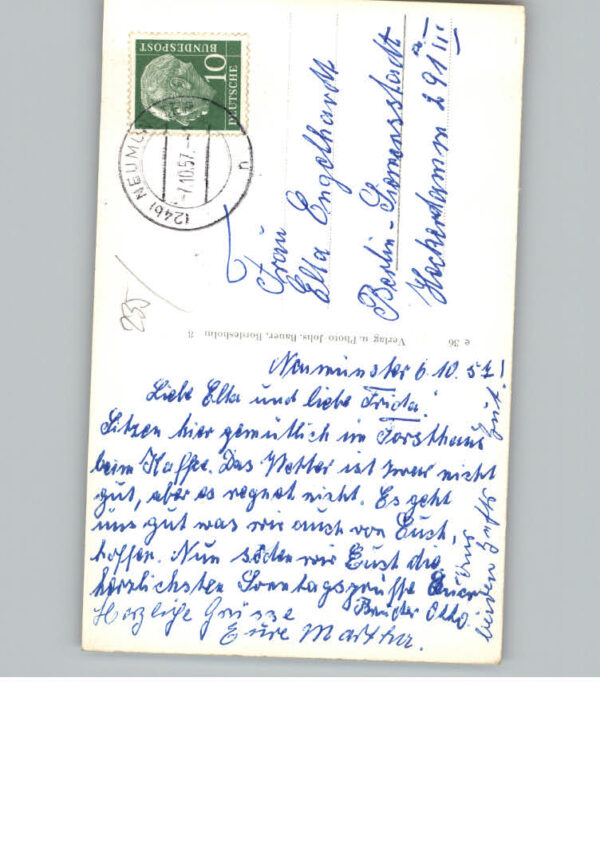 10
DEUTSCHE
BUNDESPOST
(24b) NEUMÜ
-7.10.57.-
n
Frau
Ella Engelhardt
Berlin-Siemensstadt
Heckerdamm 291 III
235
e 36 Verlag u. Photo Johs. Bauer, Bordesholm
Neumünster 6.10.57!
Liebe Ella und liebe Frida!
Sitzen hier gemütlich im Forsthaus
beim Kaffee. Das Wetter ist zwar nicht
gut, aber es regnet nicht. Es geht
uns gut was wir auch von Euch,
hoffen. Nun senden wir Euch die
herzlichsten Sonntagsgrüsse Euer
Bruder Otto.
Herzliche Grüsse
Eure Martha.
beiden gehts gut.